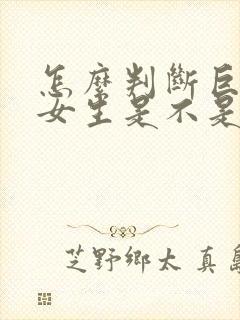 怎麼判斷巨
女生是不是
芝野鄉太 真